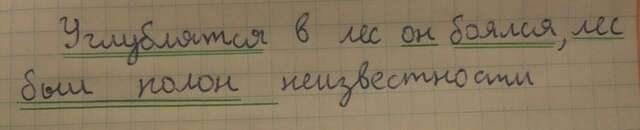 Углублятся в лес он боялся, лес
был полон неизвестности